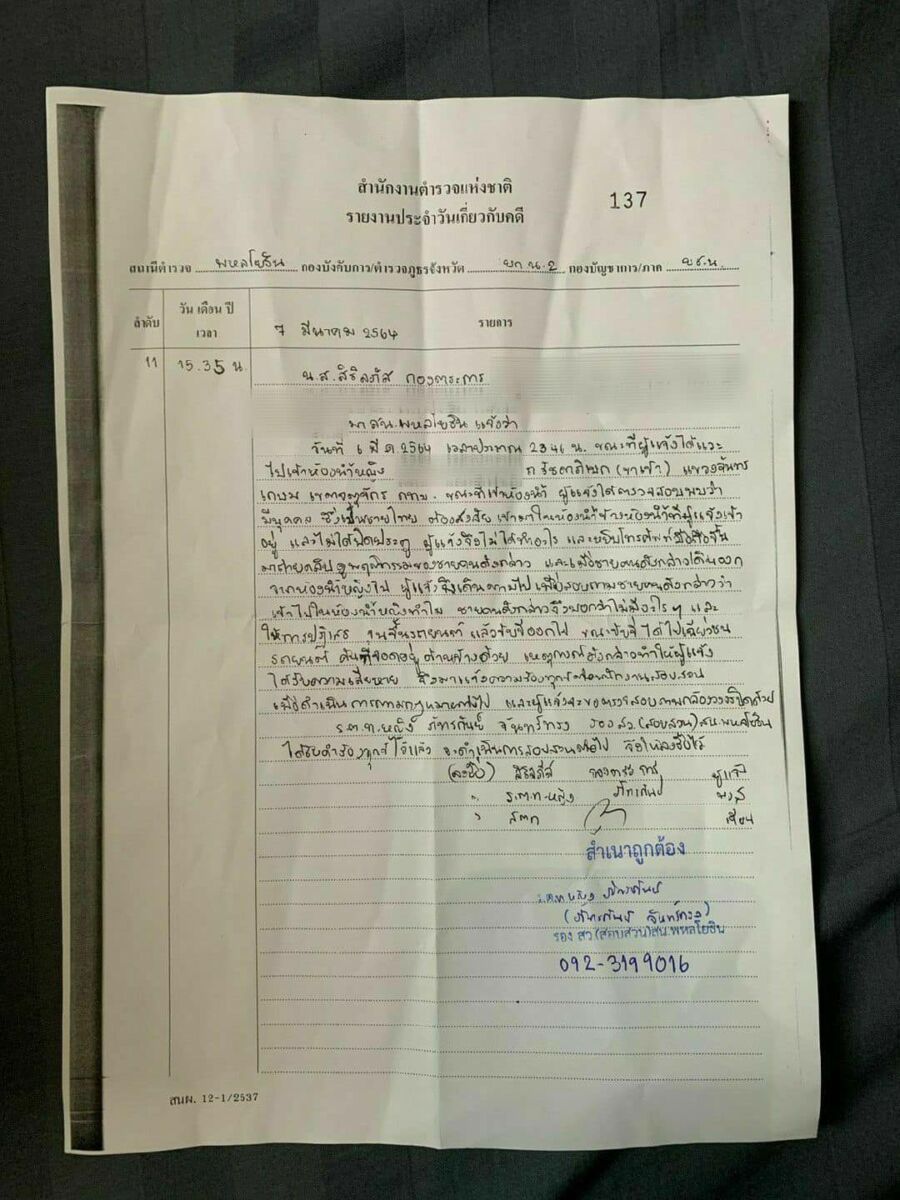 สำนักงานตำรวจแห่งชาติ
137
รายงานประจำวันเกี่ยวกับคดี
สถานีตำรวจ พหลโยธิน กองบังคับการ/ตำรวจภูธรจังหวัด บก.น.2 กองบัญชาการ/ภาค บช.น.
ลำดับ วัน เดือน ปี เวลา 7 มีนาคม 2564 รายการ
11 15.35 น. น.ส.สิริลภัส กองตระการ
มา สน.พหลโยธิน แจ้งว่า
วันที่ 6 มี.ค.2564 เวลาประมาณ 2346 น. ขณะที่ผู้แจ้งได้แวะ
ไปเข้าห้องน้ำหญิง ถ.รัชดาภิเษก (ขาเข้า) แขวงจันทร
เกษม เขตจตุจักร กทม. ขณะที่เข้าห้องน้ำ ผู้แจ้งได้ตรวจสอบพบว่า
มีบุคคล ซึ่งเป็นชายไทย ต้องสงสัย เข้ามาในห้องน้ำข้างห้องน้ำที่ผู้แจ้งเข้า
อยู่ และไม่ได้ปิดประตู ผู้แจ้งจึงไม่ได้ทำอะไร และหยิบโทรศัพท์มือถือขึ้น
มาถ่ายคลิปดูพฤติกรรมของชายคนดังกล่าว และเมื่อชายคนดังกล่าวเดินออก
จากห้องน้ำหญิงไป ผู้แจ้งจึงเดินตามไปเพื่อสอบถามชายคนดังกล่าวว่า
เข้าไปในห้องน้ำหญิงทำไม ชายคนดังกล่าวจึงบอกว่าไม่มีอะไรๆ และ
ให้การปฏิเสธ จนขึ้นรถยนต์ แล้วขับขี่ออกไป ขณะขับขี่ ได้ไปเฉี่ยวชน
รถยนต์ คันที่จอดอยู่ด้านข้างด้วย เหตุการณ์ดังกล่าวทำให้ผู้แจ้ง
ได้รับความเสียหาย จึงมาแจ้งความร้องทุกข์ต่อพนักงานสอบสวน
เพื่อดำเนินการตามกฎหมายต่อไป และผู้แจ้งจะขอตรวจสอบภาพกล้องวงจรปิดด้วย
ร.ต.ท.หญิง ภัทรกันย์ จันทร์ทรง รอง สว.(สอบสวน)สน.พหลโยธิน
ได้รับคำร้องทุกข์ไว้แล้ว จะดำเนินการสอบสวนต่อไป จึงให้ลงชื่อไว้
(ลงชื่อ) สิริลภัส กองตระการ ผู้แจ้ง
" ร.ต.ท.หญิง ภัทรกันย์ พงส
" ส.ต.ต เขียน
สำเนาถูกต้อง
ร.ต.ท.หญิง ภัทรกันย์
(ภัทรกันย์ จันทร์ทรง)
รอง สว.(สอบสวน)สน.พหลโยธิน
092-3199016
สนผ. 12-1/2537